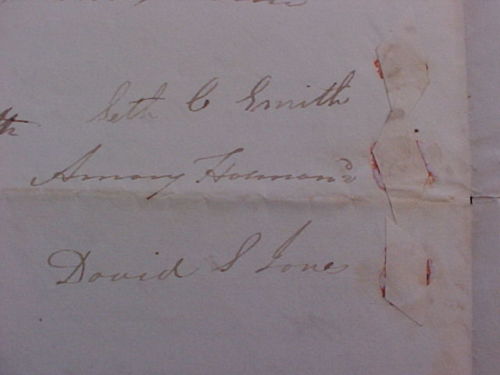 th Seth C Smith
Amory Holman
David S Jones